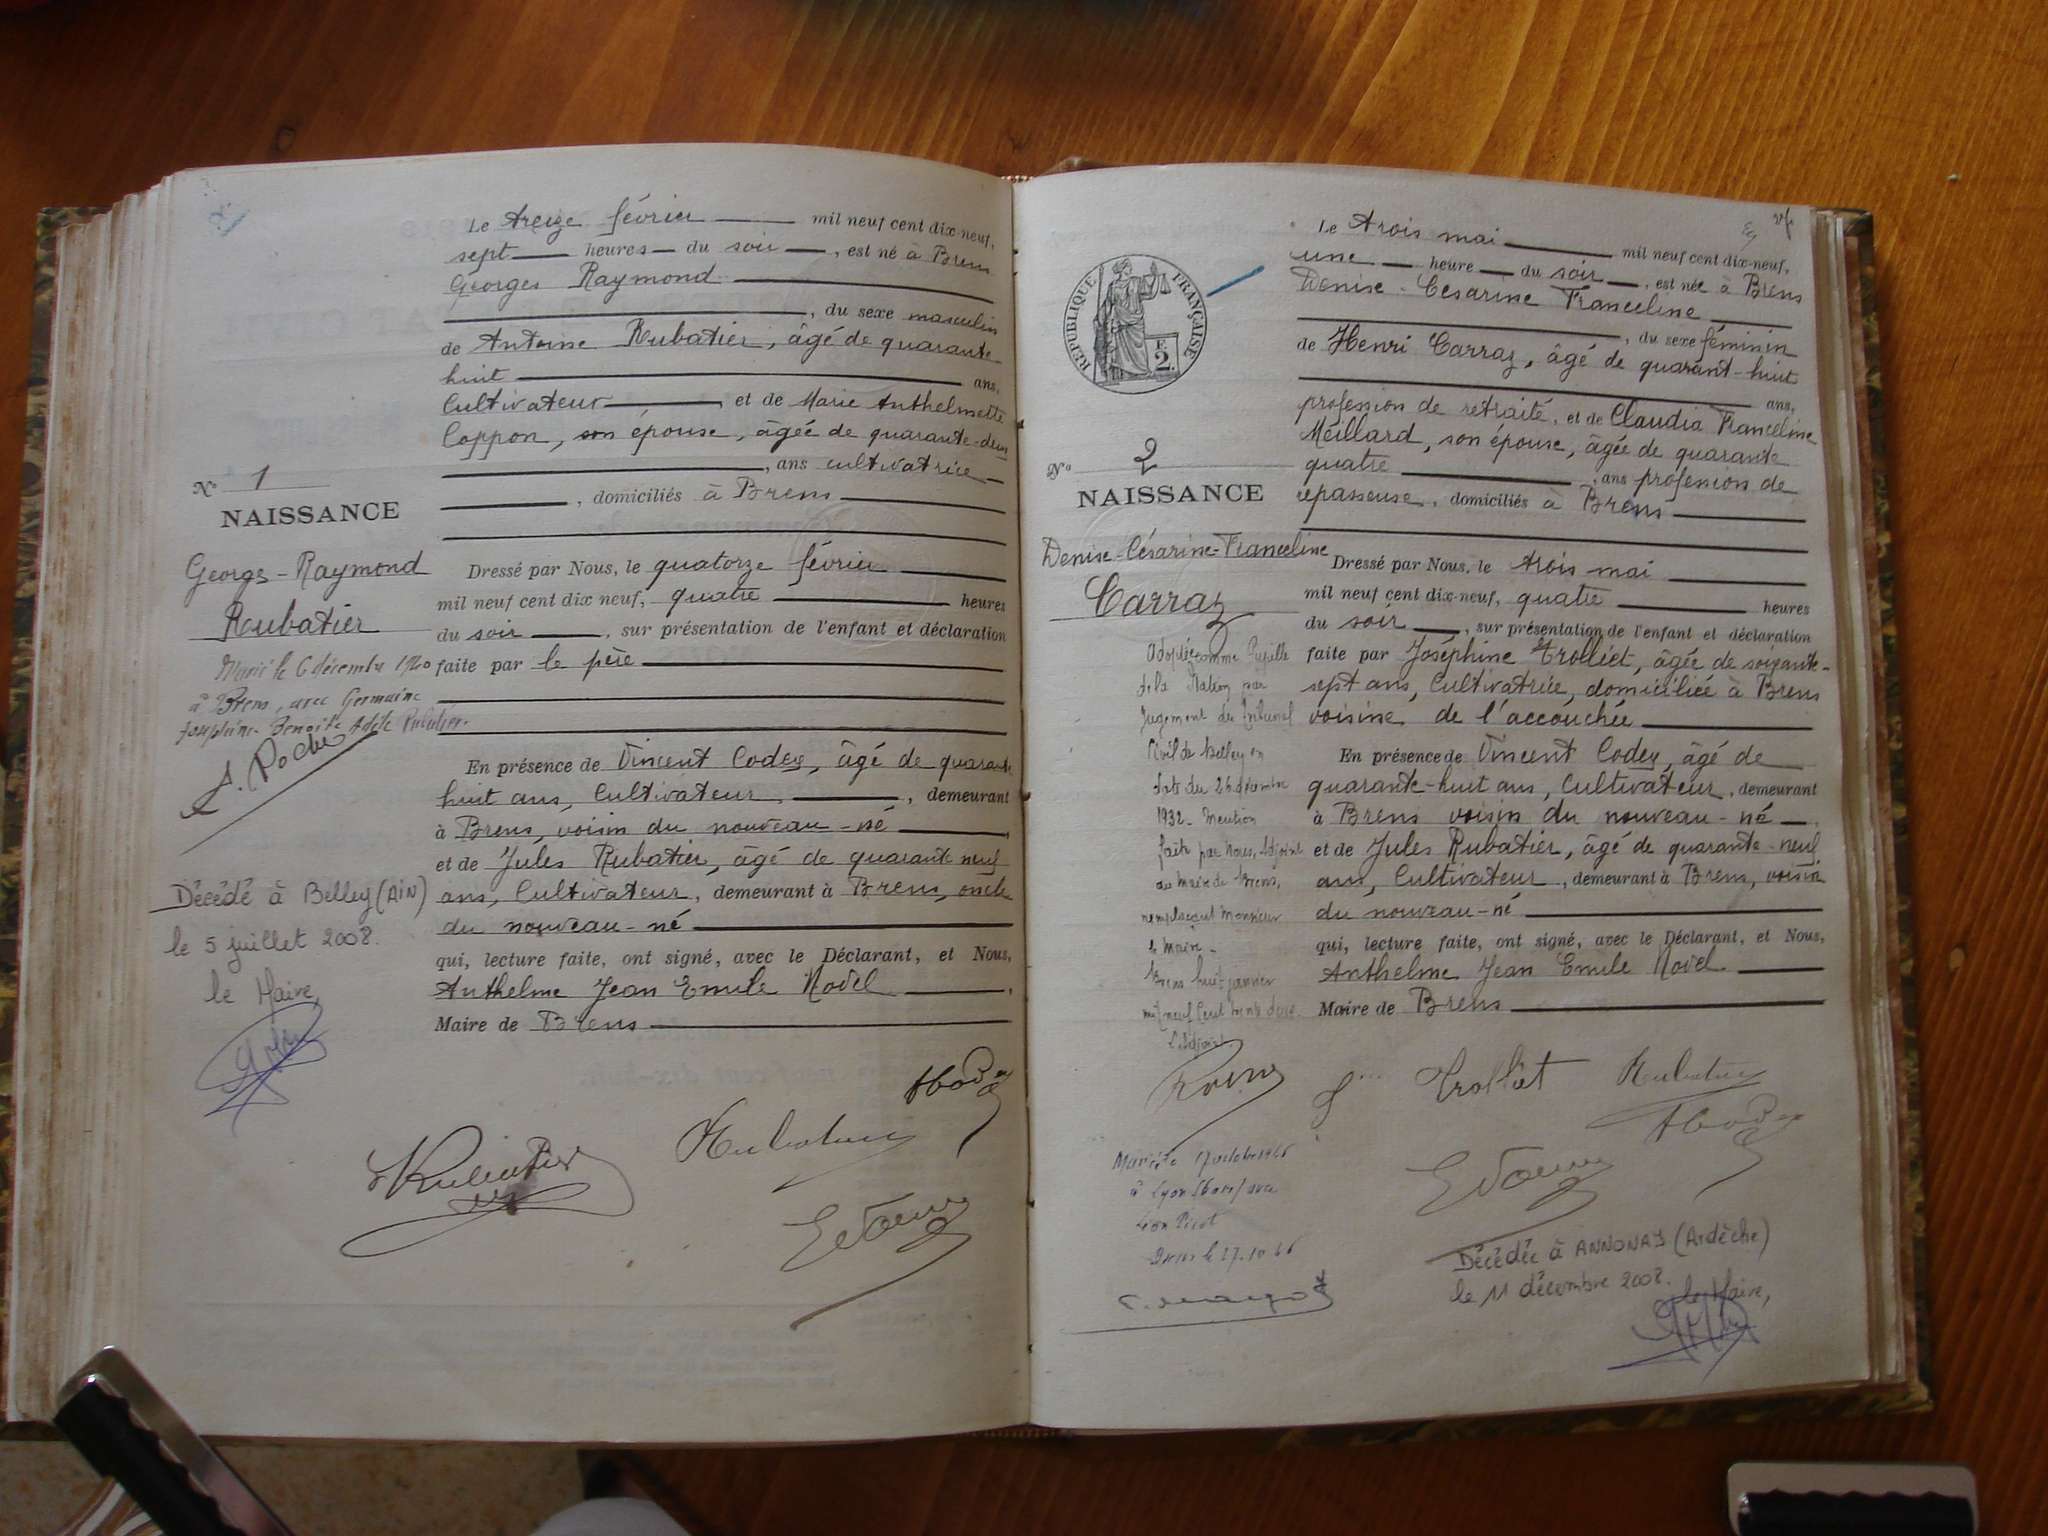 Le treize février mil neuf cent dix-neuf,
sept heures du soir, est né à Brens
Georges Raymond
, du sexe masculin
de Antoine Rubatier, âgé de quarante
huit ans,
Cultivateur, et de Marie Anthelmette
Coppon, son épouse, âgée de quarante-deux
, ans cultivatrice
, domiciliés à Brens
No 1
NAISSANCE
Georges-Raymond
Rubatier
Marié le 6 décembre
à Brens, avec Germaine
Joséphine Benoîte Adèle Rubatier.
A. Roche
Décédé à Belley (AIN)
le 5 juillet 2008.
le Maire,
Dressé par Nous, le quatorze février
mil neuf cent dix neuf, quatre heures
du soir, sur présentation de l'enfant et déclaration
faite par le père
En présence de Vincent Codex, âgé de quarante
huit ans, Cultivateur, demeurant
à Brens, voisin du nouveau-né,
et de Jules Rubatier, âgé de quarante neuf
ans, Cultivateur, demeurant à Brens, oncle
du nouveau-né
qui, lecture faite, ont signé, avec le Déclarant, et Nous,
Anthelme Jean Emile Nodet,
Maire de Brens
Rubatier
Rubatier
Le trois mai mil neuf cent dix-neuf,
une heure du soir, est née à Brens
Denise-Césarine Franceline
, du sexe féminin
de Henri Carraz, âgé de quarant-huit
ans,
profession de retraité, et de Claudia Franceline
Meillard, son épouse, âgée de quarante
quatre, ans profession de
repasseuse, domiciliés à Brens
RÉPUBLIQUE FRANÇAISE
F.
2.
No 2
NAISSANCE
Denise-Césarine-Franceline
Carraz
Adoptée comme Pupille
de la Nation par
Jugement du Tribunal
Civil de Belley en
date du décembre
1932. Mention
faite par Nous, Adjoint
au maire de Brens,
remplaçant Monsieur
le maire
Brens huit janvier
mil neuf cent trente
L'adjoint
Mariée le 17 octobre
à Lyon
Léon
Brens le 27.10.
Dressé par Nous, le trois mai
mil neuf cent dix-neuf, quatre heures
du soir, sur présentation de l'enfant et déclaration
faite par Joséphine Trolliet, âgée de soixante-
sept ans, Cultivatrice, domiciliée à Brens
voisine de l'accouchée
En présence de Vincent Codex, âgé de
quarante-huit ans, Cultivateur, demeurant
à Brens voisin du nouveau-né,
et de Jules Rubatier, âgé de quarante-neuf
ans, Cultivateur, demeurant à Brens, voisin
du nouveau-né
qui, lecture faite, ont signé, avec le Déclarant, et Nous,
Anthelme Jean Emile Nodet.
Maire de Brens
Trolliet Rubatier
Décédée à ANNONAY (Ardèche)
le 11 décembre 2008.
le Maire,